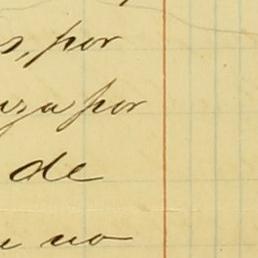 s, por
nza por
de
no